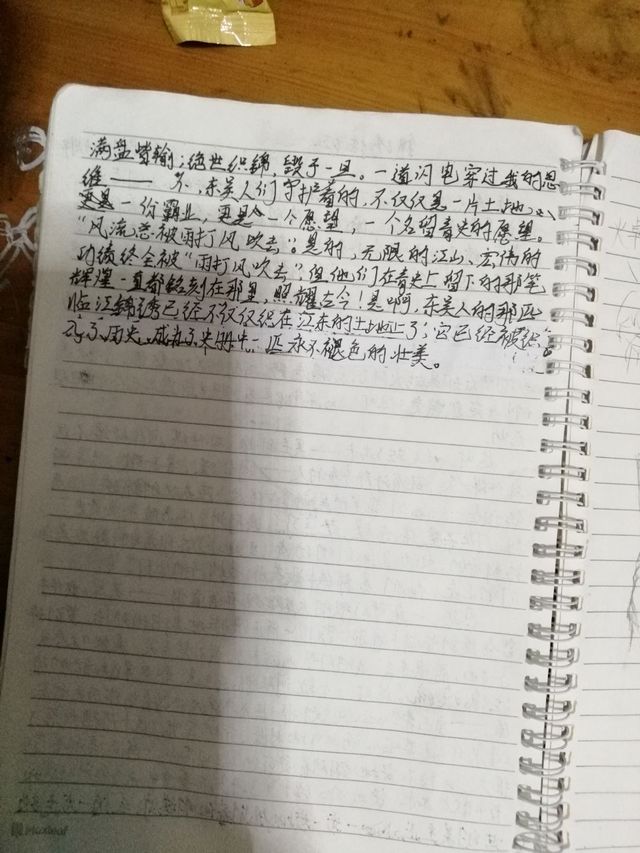 满盘皆输；绝世织锦，毁于一旦。一道闪电穿过我的思
维——不，东吴人们守护着的，不仅仅是一片土地，
更是一份霸业，更是一个愿望，一个名留青史的愿望。
“风流总被雨打风吹去”。是的，无限的江山、宏伟的
功绩终会被“雨打风吹去”但他们在青史上留下的那笔
辉煌一直都铭刻在那里，照耀古今！是啊，东吴人的那匹
临江锦绣已经不仅仅织在江东的土地上了；它已经被织
了历史，成为了史册中一匹永不褪色的壮美。